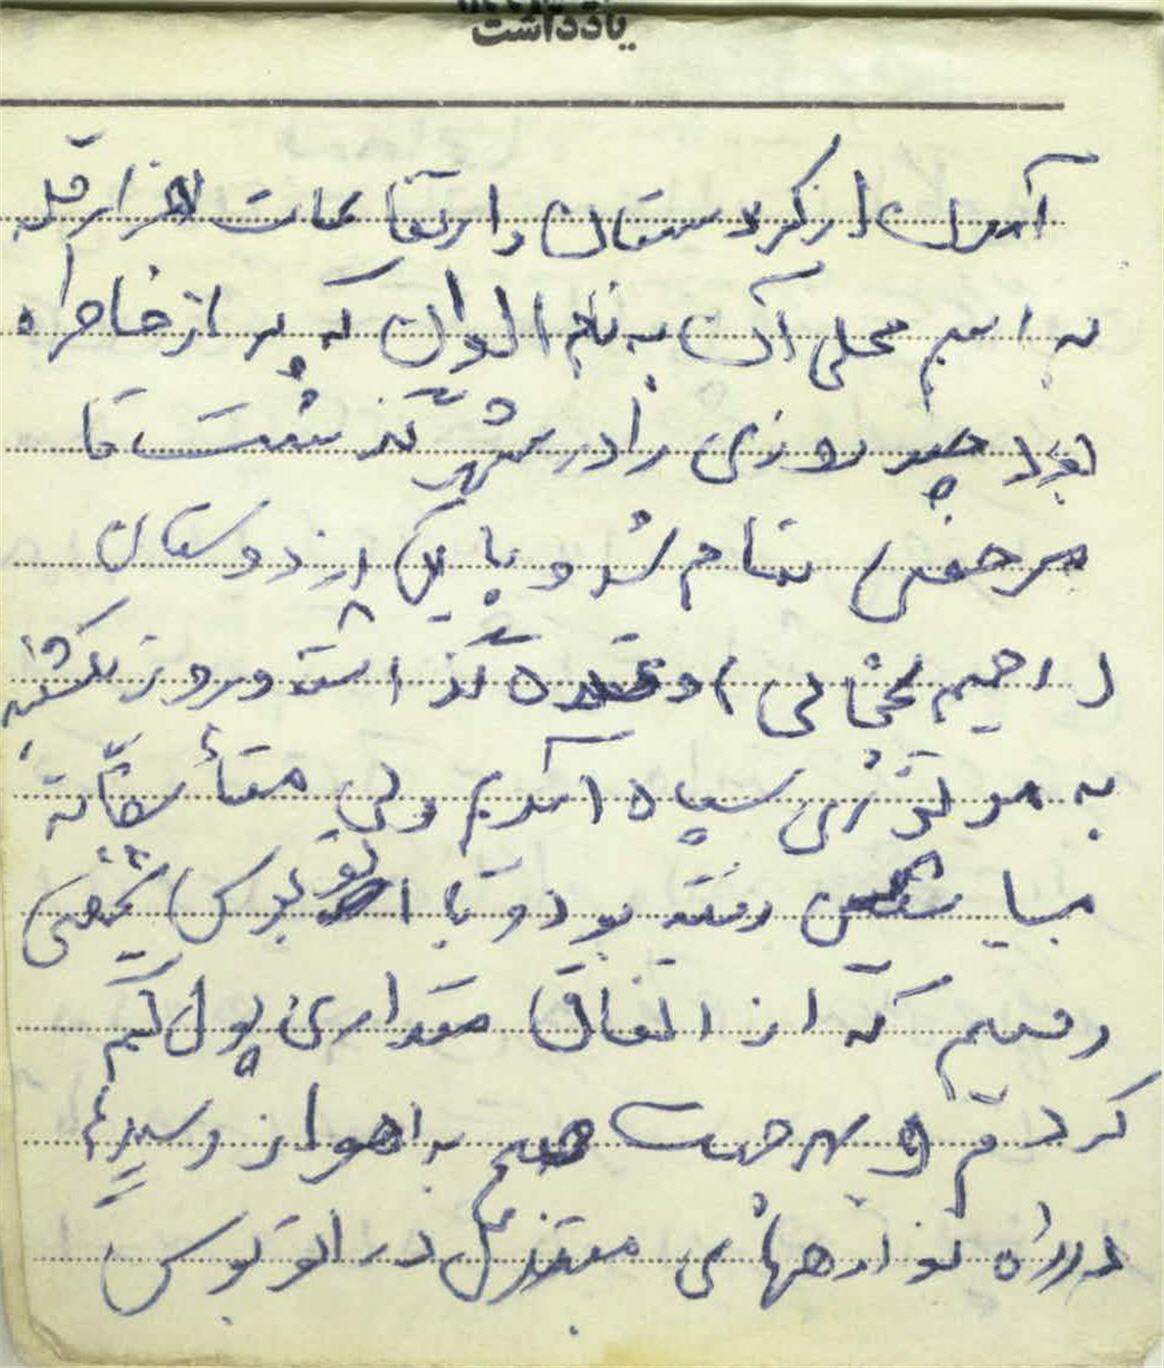 یادداشت
آمدن از کردستان و ارتفاعات هزار قله
به اسم محلی آن به نام الوان که پر از خاطراه
بود چند روزی را در شهر گذشت تا
مرخصی تمام شد و با یکی از دوستان
(رحیم ) وعده گذاشته و روز یکشنبه
به موتوری سپاه آمدیم ولی متأسفانه
ماشین رفته بود و با اتوبوس شخصی
رفتیم که از اتفاق مقداری پول گم
کردم و بهر جهت صبح به اهواز رسیدیم
در راه نوارهای مبتذل در اتوبوس